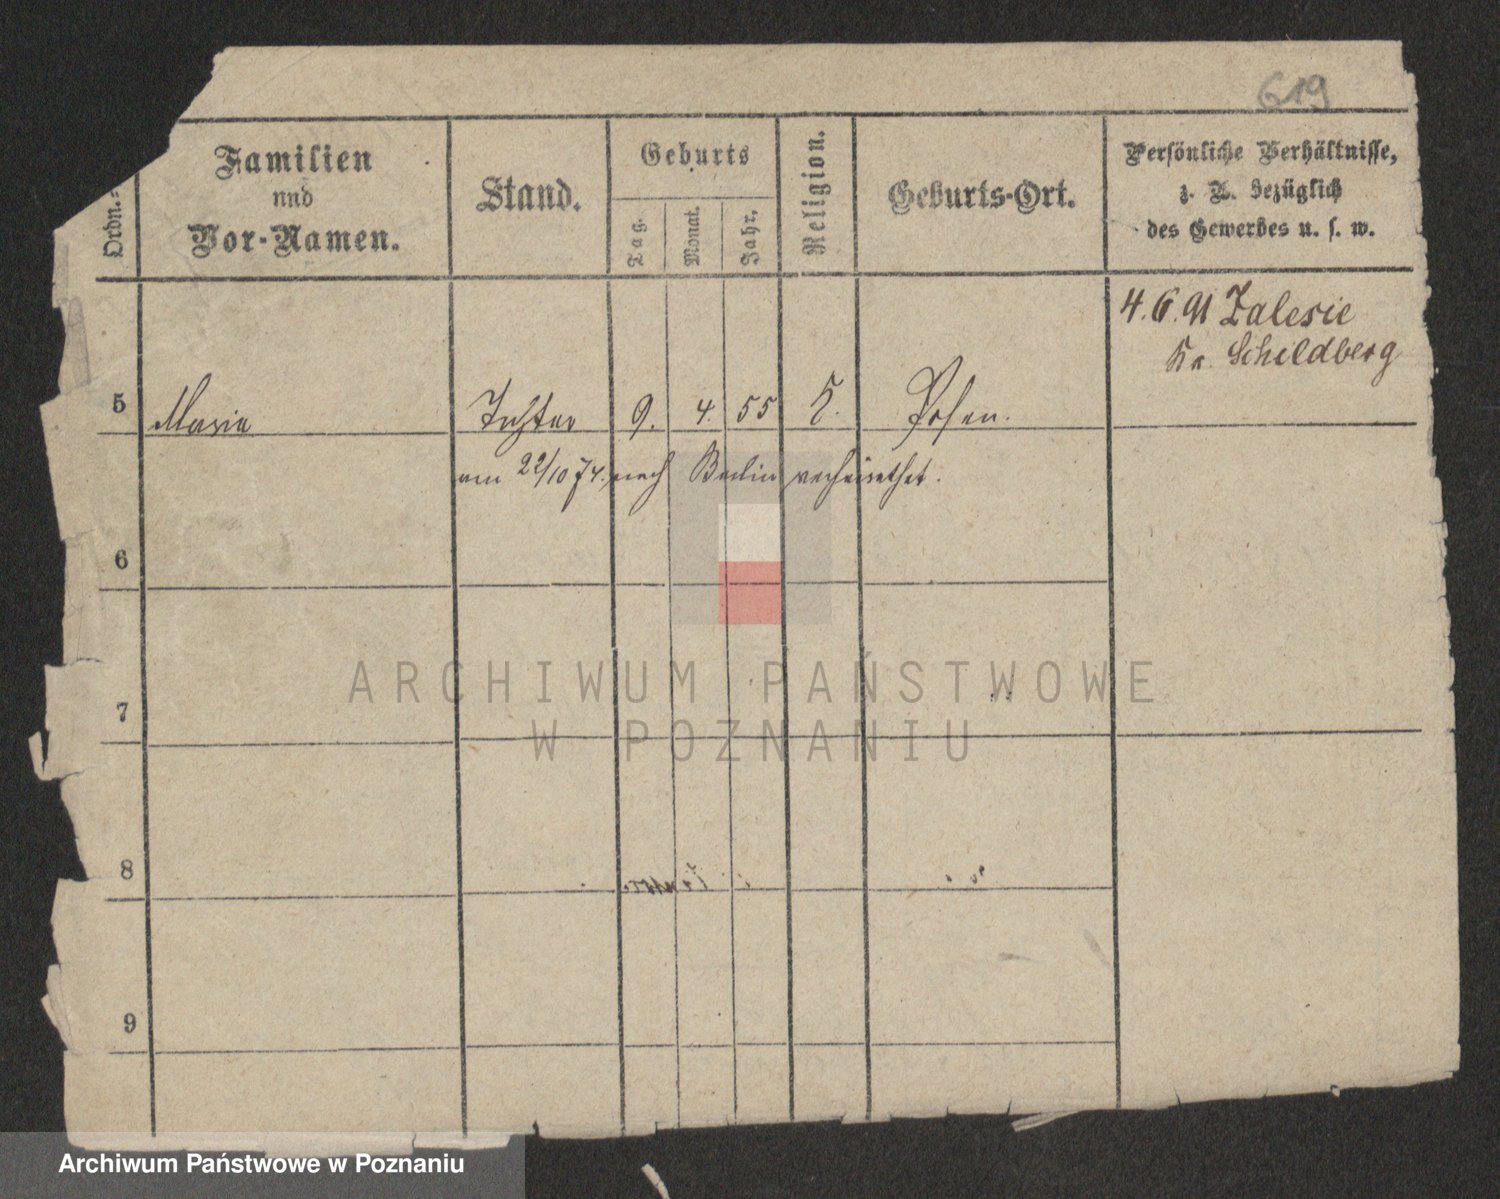 619
Ordn.-
Familien
und
Vor-Namen.
Stand.
Geburts
Tag.
Monat.
Jahr.
Religion.
Geburts-Ort.
Persönliche Verhältnisse,
z. B. bezüglich
des Gewerbes u. s. w.
4.6.91 Zalesie
Kr. Schildberg
5 Maria Tochter 9. 4. 55 K. Posen.
am 22/10 74. nach Berlin verheirathet.
6
ARCHIWUM PAŃSTWOWE
7
W POZNANIU
8
9
Archiwum Państwowe w Poznaniu